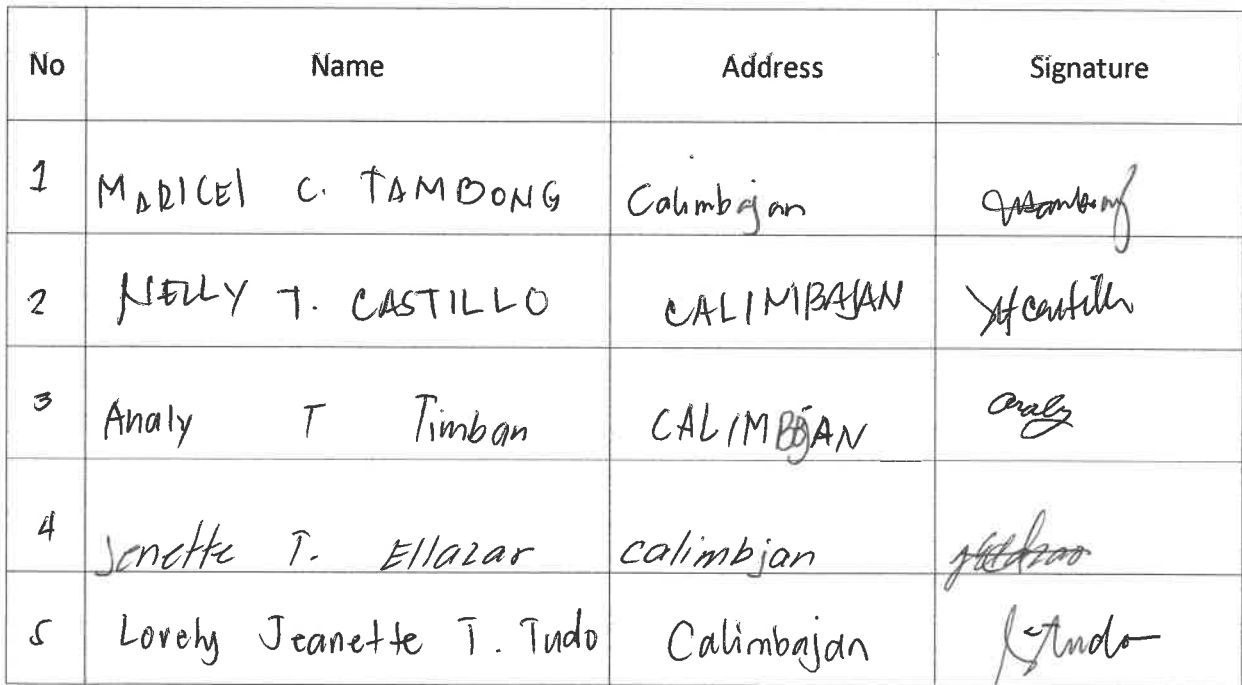 No Name Address Signature
1 MARICEl C. TAMBONG Calimbajan
2 NELLY T. CASTILLO CALIMBAJAN
3 Analy T Timban CALIMBJAN Analy
4 Jenette T. Ellazar calimbjan
5 Lovely Jeanette T. Tudo Calimbajan